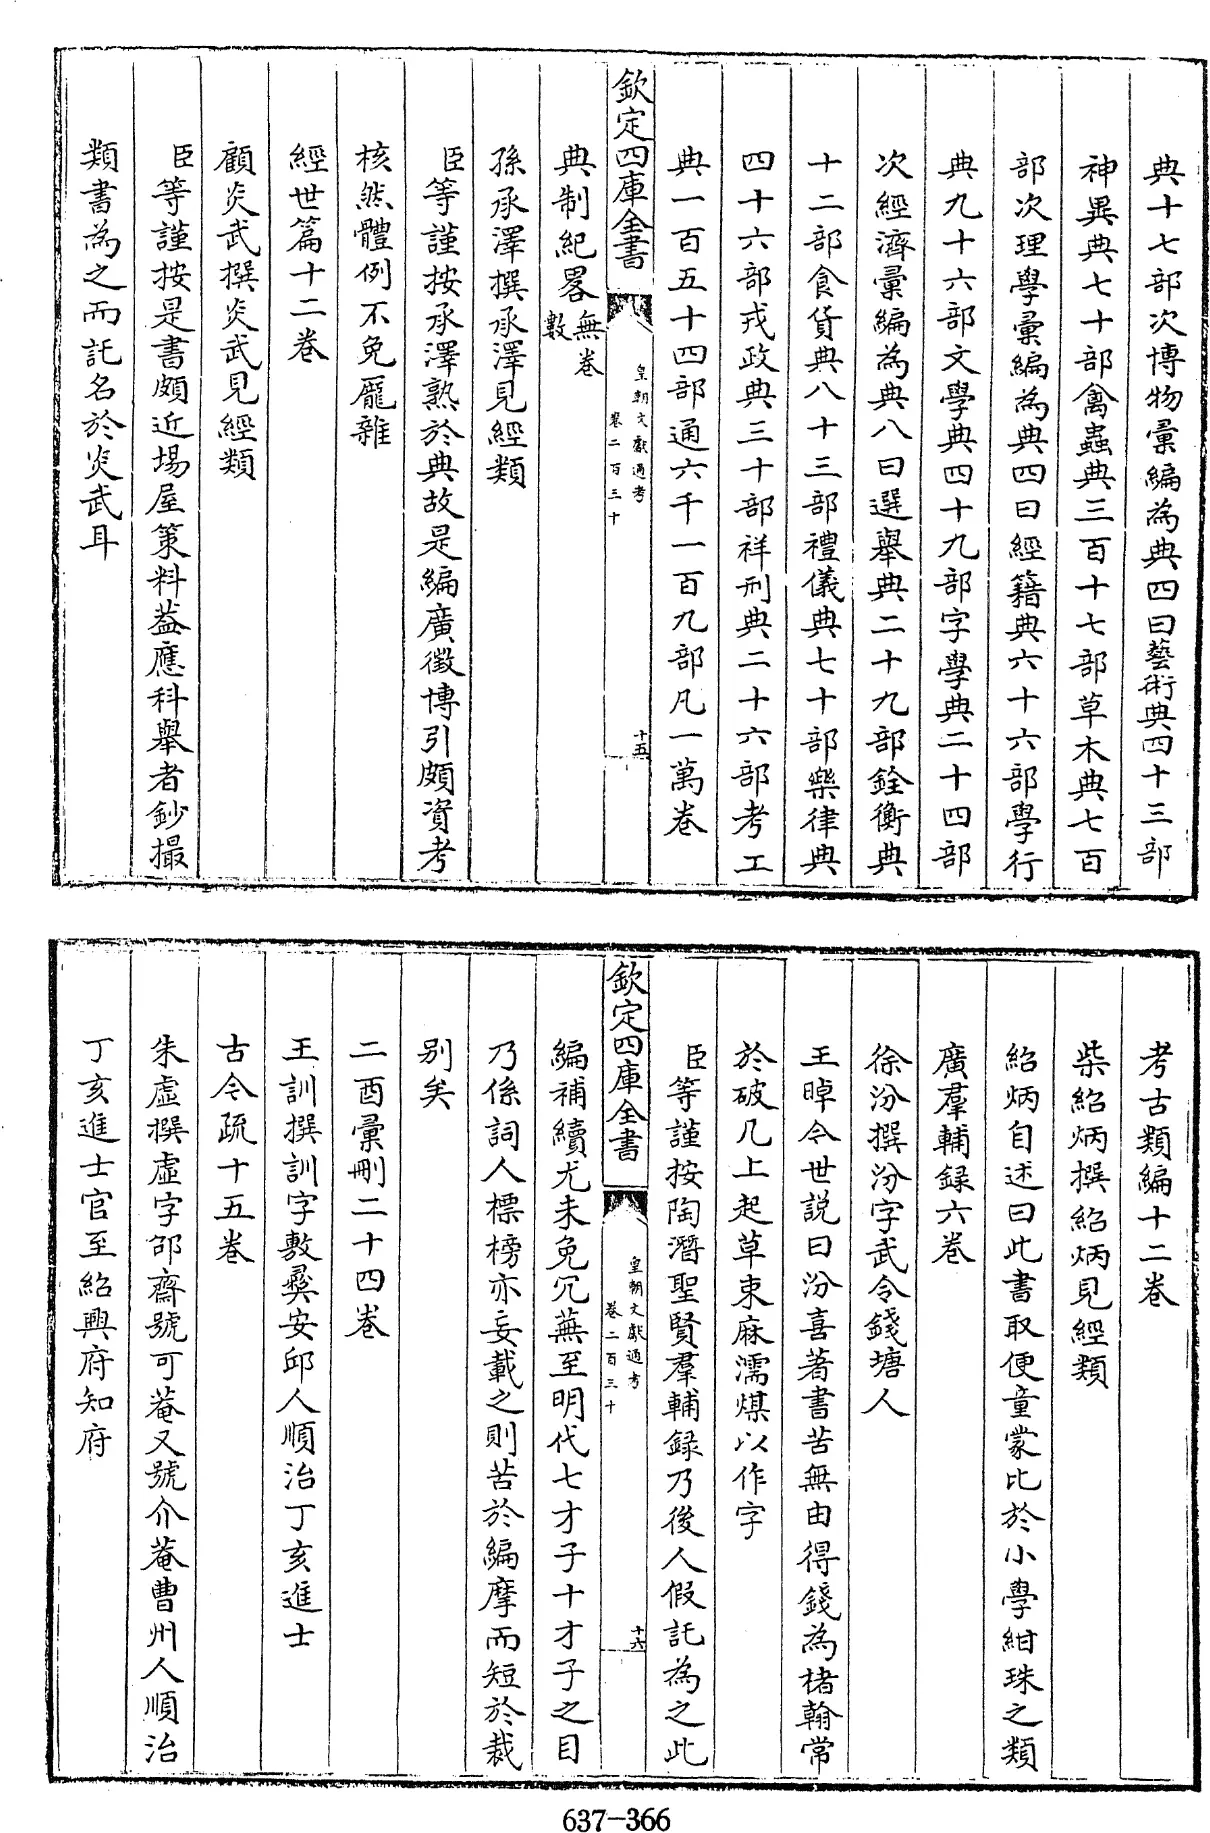 典十七部次博物彚編為典四曰藝術典四十三部
神異典七十部禽蟲典三百十七部草木典七百
部次理學彚編為典四曰經籍典六十六部學行
典九十六部文學典四十九部字學典二十四部
次經濟彚編為典八曰選舉典二十九部銓衡典
十二部食貨典八十三部禮儀典七十部樂律典
四十六部戎政典三十部祥刑典二十六部考工
典一百五十四部通六千一百九部凡一萬卷
欽定四庫全書
皇朝文獻通考
卷二百三十
十五
典制紀畧無卷數
孫承澤撰承澤見經類
臣等謹按承澤熟於典故是編廣徵博引頗資考
核然體例不免龎雜
經世篇十二卷
顧炎武撰炎武見經類
臣等謹按是書頗近場屋策料葢應科舉者鈔撮
類書為之而託名於炎武耳
考古類編十二卷
柴紹炳撰紹炳見經類
紹炳自述曰此書取便童蒙比於小學紺珠之類
廣羣輔録六卷
徐汾撰汾字武令錢塘人
王晫今世說曰汾喜著書苦無由得錢為楮翰常
於破几上起草束麻濡煤以作字
臣等謹按陶潛聖賢羣輔録乃後人假託為之此
欽定四庫全書
皇朝文獻通考
卷二百三十
十六
編補續尤未免冗蕪至明代七才子十才子之目
乃係詞人標榜亦妄載之則苦於編摩而短於裁
别矣
二酉彚刪二十四卷
王訓撰訓字敷彛安邱人順治丁亥進士
古今疏十五卷
朱虛撰虛字邵齋號可菴又號介菴曹州人順治
丁亥進士官至紹興府知府
637-366